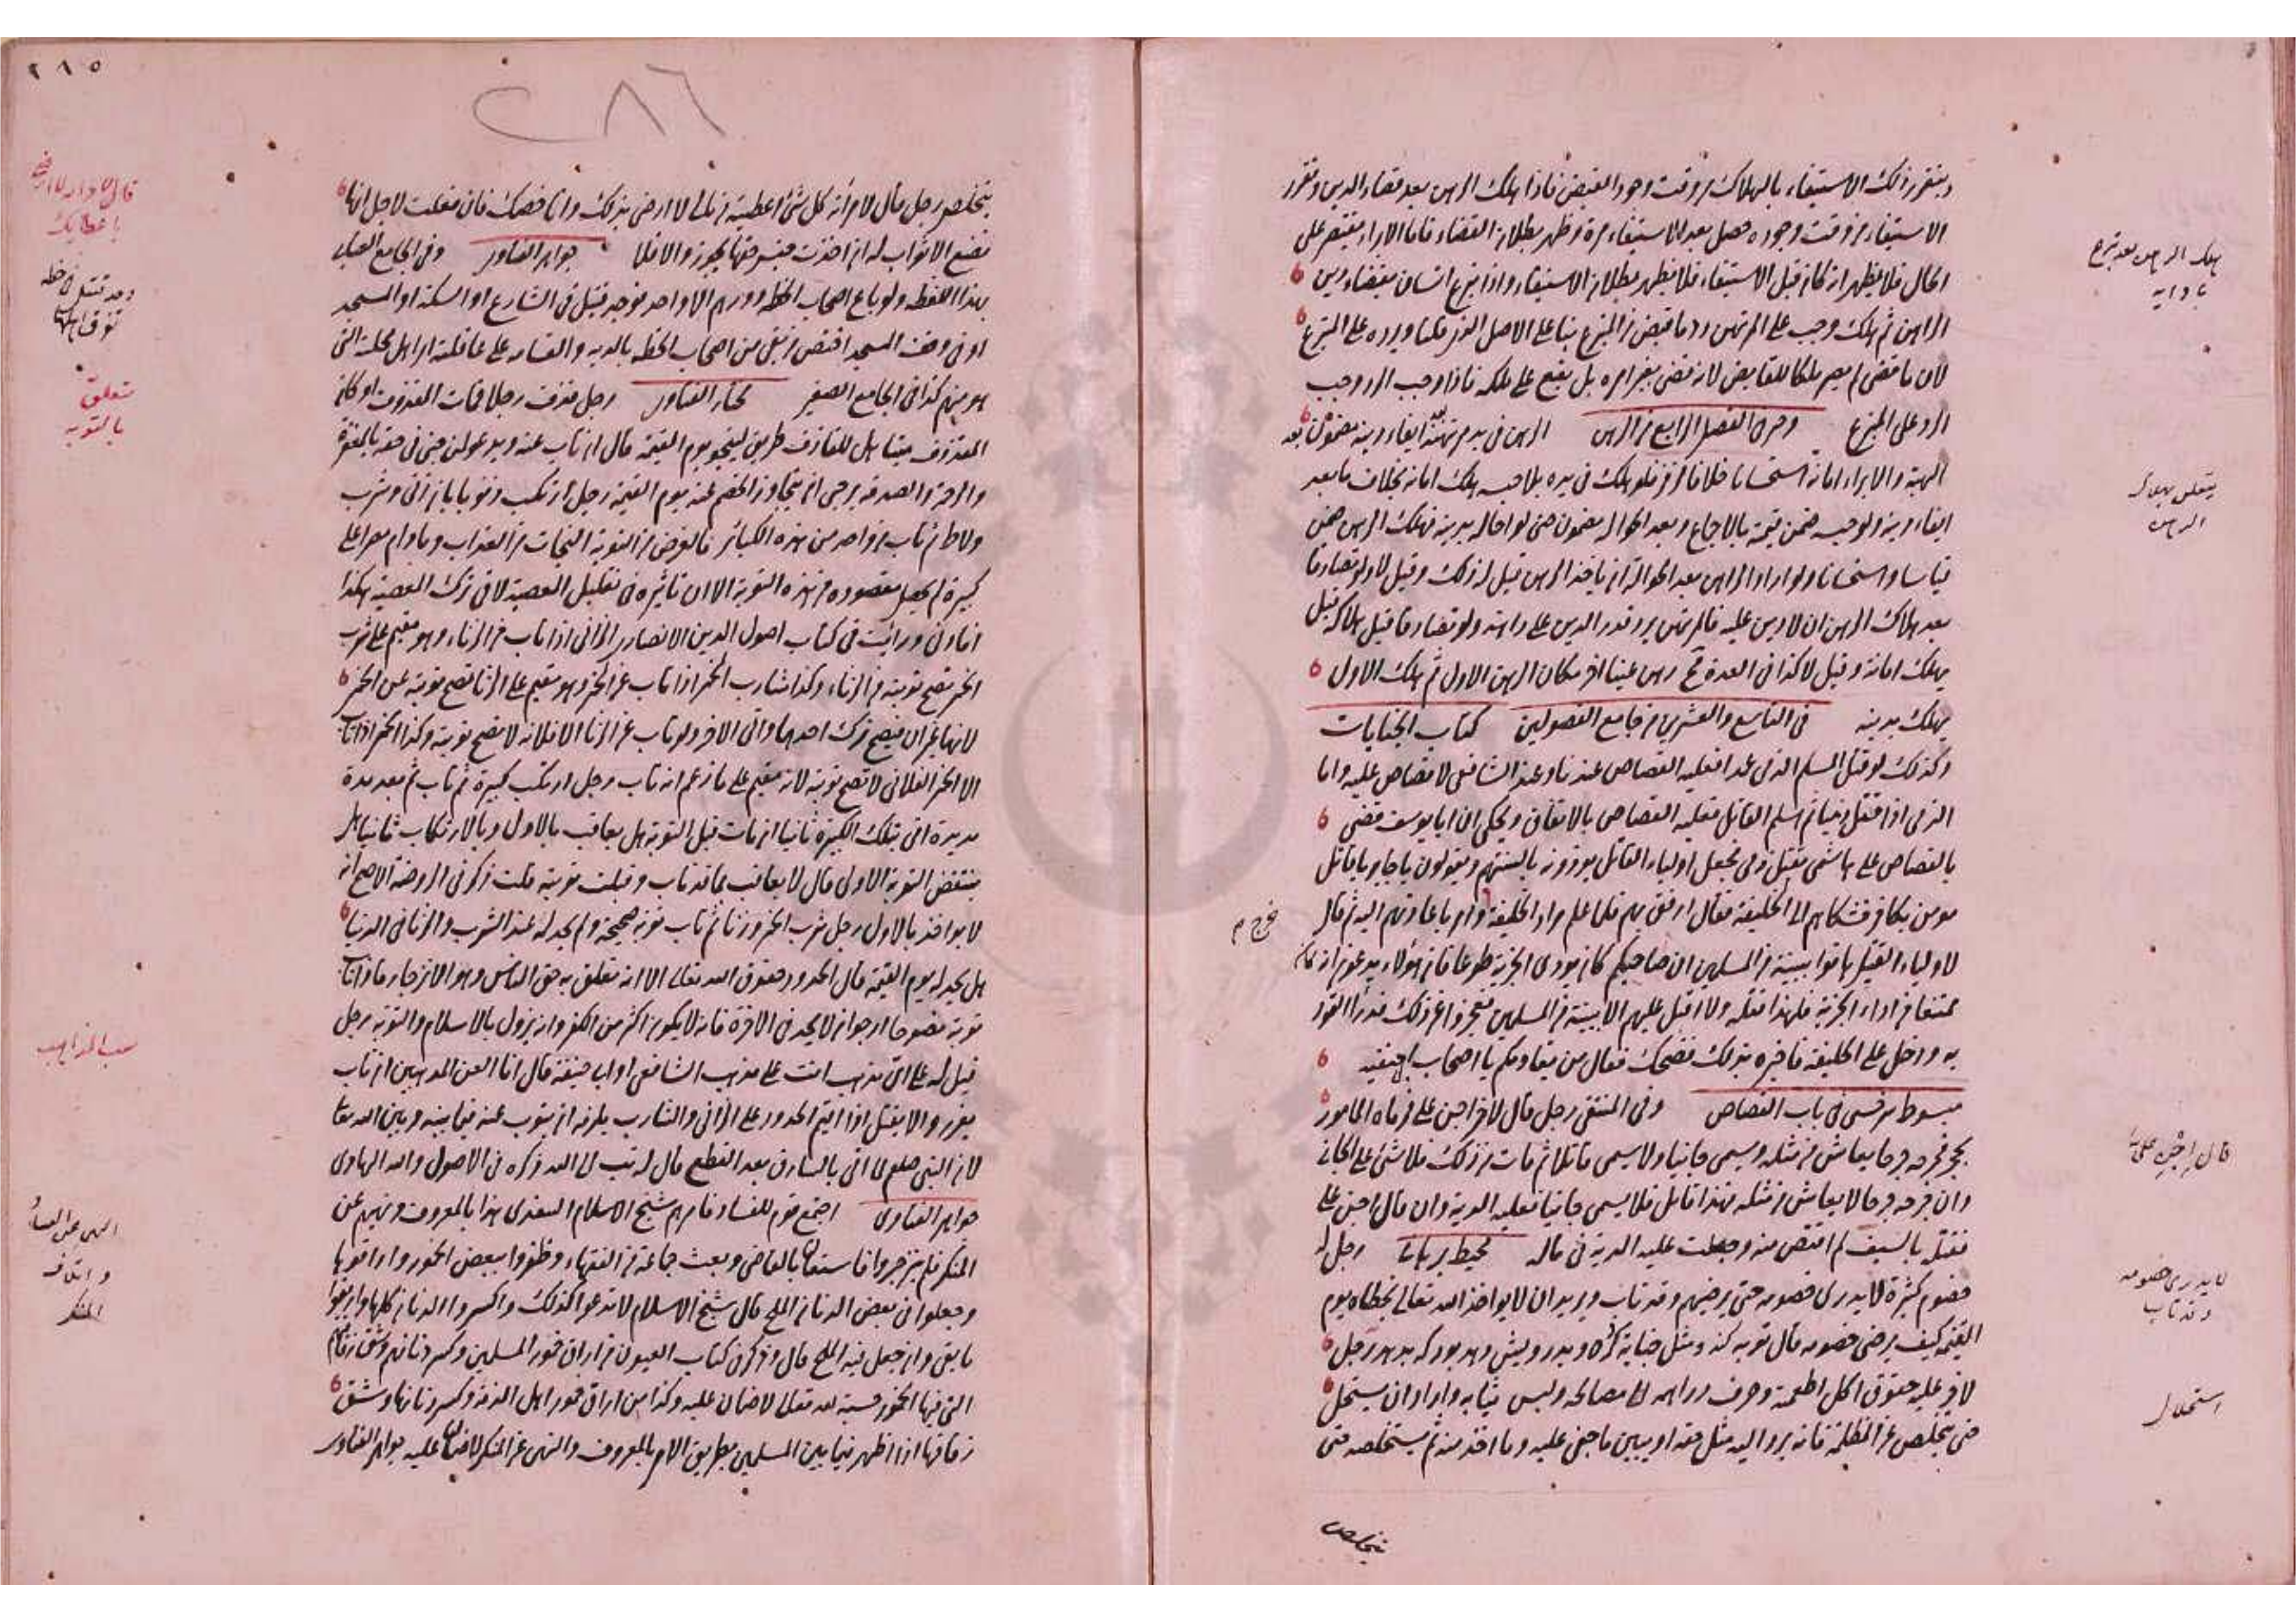 ويتقرر ذلك الاستيفاء بالهلاك من وقت وجود القبض فاذا هلك الرهن بعد قضاء الدين وتقرر
الاستيفاء من وقت وجوده حصل بعد الاستيفاء مرة وظهر بطلان القضاء فاما الابراء يقتصر على
الحال فلا يظهر انه كان قبل الاستيفاء فلا يظهر بطلان الاستيفاء واذا تبرع انسان بقضاء دين
الراهن ثم هلك وجب على المرتهن رد ما قبض من المتبرع بناء على الاصل الذى قلنا ويرده على المتبرع
لان ما قضى لم يصر ملكا للقابض لانه قضى بغير امره بل يقع على ملكه فاذا وجب الرد وجب
الرد على المتبرع وفى الفصل الرابع من الرهن الرهن فى يد مرتهنه بعد ايفاء دينه مضمون بعد
الهبة والابراء امانة استحسانا خلافا لزفر فلو هلك فى يده بلا حبسه هلك امانة بخلاف ما بعد
ايفاء دينه ولو حبسه ضمن قيمته بالاجماع وبعد الحوالة مضمون حتى لو احاله بدينه فهلك الرهن ضمن
قياسا واستحسانا ولو اراد الراهن بعد الحوالة ان ياخذ الرهن قيل له ذلك وقيل لا ولو تصادقا
بعد هلاك الرهن ان لا دين عليه فالمرتهن يرد قدر الدين على راهنه ولو تصادقا قبل هلاكه قيل
يهلك امانة وقيل لا كذا فى العدة رهن عينا اخر مكان الرهن الاول ثم هلك الاول
يهلك بدينه فى التاسع والعشرين من جامع الفصولين كتاب الجنايات
وكذلك لو قتل المسلم الذمى عمدا فعليه القصاص عندنا وعند الشافعى لا قصاص عليه واما
الذمى اذا قتل ذميا ثم اسلم القاتل فعليه القصاص بالاتفاق ويحكى ان ابا يوسف قضى
بالقصاص على هاشمى بقتل ذمى فجعل اولياء القاتل يوذونه بالسنتهم ويقولون يا جاير يا قاتل
مومن بكافر فشكاهم الى الخليفة فقال ارفق بهم فلما علم مراد الخليفة امر باعادتهم اليه ثم قال
لاولياء القتيل هاتوا ببينة من المسلمين ان صاحبكم كان يودى الجزية طوعا فان هؤلاء يدعون انه كان
ممتنعا من اداء الجزية فلهذا قتله ولا اقبل عليهم الا بينة من المسلمين فعجزوا عن ذلك فدرأ القود
به ودخل على الخليفة فاخبره بذلك فضحك فقال من يقاومكم يا اصحاب ابى حنيفة
مبسوط سرخسى فى باب القصاص وفى المنتقى رجل قال لاخر اجن على فرماه المامور
بحجر فجرحه جرحا يعاش من مثله ويسمى جانيا ولا يسمى قاتلا ثم مات من ذلك فلا شئ على الجانى
وان جرحه جرحا لا يعاش من مثله فهذا قاتل فلا يسمى جانيا فعليه الدية وان قال اجن على
فقتله بالسيف لم اقتص منه وجعلت عليه الدية فى ماله محيط برهانى رجل له
خصوم كثيرة لا يدرى خصومه حتى يرضيهم وقد تاب ويريد ان لا يواخذ الله تعالى بخطاه يوم
القيمة كيف يرضى خصومه قال توبه كند ومثل جنايه كرده بدرويش دهد رجل
لاخر عليه حقوق اكل اطعمة وصرف دراهمه الى مصالحه ولبس ثيابه واراد ان يستحل
حتى يتخلص عن المظلمة فانه يرد اليه مثل حقه او يبين ما جنى عليه وما اخذ منه ثم يستحله حتى
يتخلص
هلك الرهن بعد تبرع
يتعلق بهلاك
الرهن
قال اجن على
لا يدرى خصومه
وقد تاب
استحلال
٢٨٥
٢٨٦
يتخلص رجل قال لامرأته كل شئ اعطيته من مالى لا ارضى بذلك وانا خصمك فان فعلت لاجل انها
تضع الاثواب له ان اخذت جنس حقها يجوز والا فلا جواهر الفتاوى وفى الجامع الصغير
بهذا اللفظ ولو باع اصحاب الخطة دورهم الا واحد فوجد قتيل فى الشارع او السكة او المسجد
هو منهم كذا فى الجامع الصغير مختار الفتاوى رجل قذف رجلا فمات المقذوف او كان
المقذوف ميتا هل للقاذف طريق لينجو يوم القيمة قال ان تاب عنه ويدعو لمن جنى فى حقه بالمغفرة
والرحمة والصدقة يرجى ان يتجاوز الخصم عنه يوم القيمة رجل ارتكب ذنوبا بان زنى وشرب
ولاط ثم تاب من واحد من هذه الكبائر فالغرض من التوبة النجات من العذاب وما دام مصرا على
كبيرة لم يحصل مقصوده من هذه التوبة الا ان تاثيره فى تقليل المعصية لا فى ترك المعصية هكذا
افاد ورأيت فى كتاب اصول الدين للانصارى الزانى اذا تاب من الزناء وهو مقيم على شرب
الخمر تصح توبته من الزناء وكذا شارب الخمر اذا تاب عن الخمر وهو مقيم على الزنا تصح توبته عن الخمر
لانهما غيران فيصح ترك احدهما واتى الاخر ولو تاب عن الزنا الا فلانة لا تصح توبته وكذا الخمر اذا تاب
الا الخمر الفلانى لا تصح توبته لانه مقيم على ما زعم انه تاب رجل ارتكب كبيرة ثم تاب ثم بعد مدة
مديدة اتى بتلك الكبيرة ثانيا ان مات قبل التوبة هل يعاقب بالاول وبالارتكاب ثانيا هل
ينتقض التوبة الاولى قال لا يعاقب بما قد تاب وقبلت توبته قلت ذكر فى الروضة الاصح انه
لا يواخذ بالاول رجل شرب الخمر وزنا ثم تاب توبة صحيحة ولم يحد له عند الشرب والزنا فى الدنيا
هل يحد له يوم القيمة قال الحدود حقوق الله تعالى الا انه تعلق به حق الناس وهو الانزجار فاذا تاب
توبة نصوحا ارجوا ان لا يحد فى الاخرة فانه لا يكون اكثر من الكفر وانه يزول بالاسلام والتوبة رجل
قيل له على اى مذهب انت على مذهب الشافعى او ابى حنيفة قال انا العن المذهبين ان تاب
يعزر والا يقتل اذا اقيم الحدود على الزانى والشارب يلزمه ان يتوب عنه فيما بينه وبين الله تعالى
لان النبى صلعم اتى بالسارق بعد القطع قال له تب الى الله ذكره فى الاصول والله الهادى
جواهر الفتاوى اجتمع قوم للفساد فامرهم شيخ الاسلام السغدى بهذا بالمعروف ونهيهم عن
المنكر فلم ينزجروا فاستعان بالقاضى وبعث جماعة من الفقهاء وظفروا ببعض الخمور واراقوها
وجعلوا فى بعض الدنان الملح قال شيخ الاسلام لا تدعوا كذلك واكسروا الدنان كلها واريقوا
ما بقى وان جعل فيه الملح قال وذكر فى كتاب العيون من اراق خمور المسلمين وكسر دنانهم وشق زقاقهم
التى فيها الخمور حسبة لله تعالى لا ضمان عليه وكذا من اراق خمور اهل الذمة وكسر دنانها وشق
زقاقها اذا اظهر فيما بين المسلمين بطريق الامر بالمعروف والنهى عن المنكر لا ضمان عليه جواهر الفتاوى
يتعلق
بالتوبة
سب المذاهب
النهى عن الفساد
المنكر